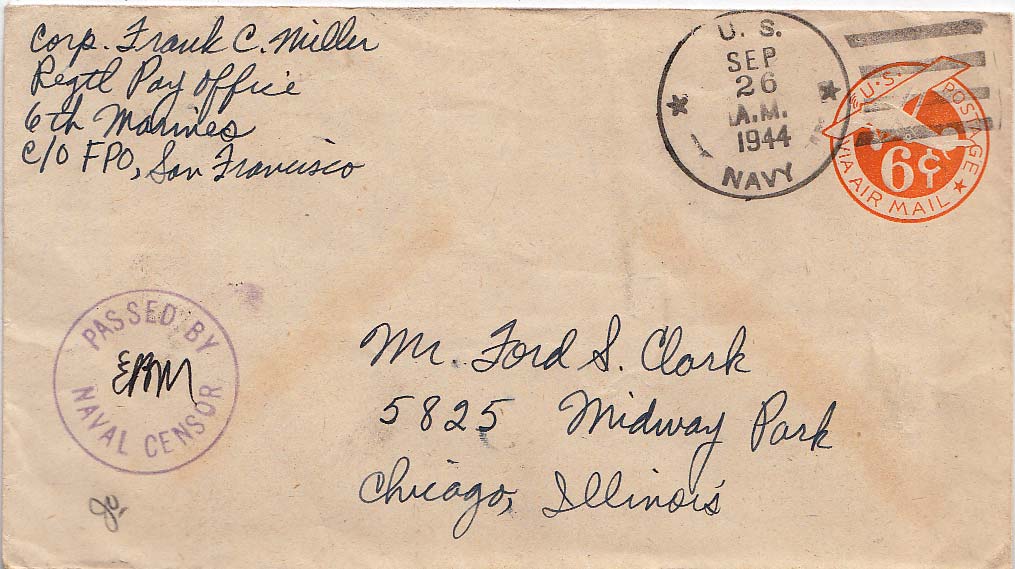 Corp. Frank C. Miller
Regtl Pay Office
6th Marines
c/o FPO, San Francisco
U. S.
SEP
26
A.M.
1944
NAVY
U.S. POSTAGE
6¢
VIA AIR MAIL
PASSED BY
NAVAL CENSOR
Mr. Ford S. Clark
5825 Midway Park
Chicago, Illinois